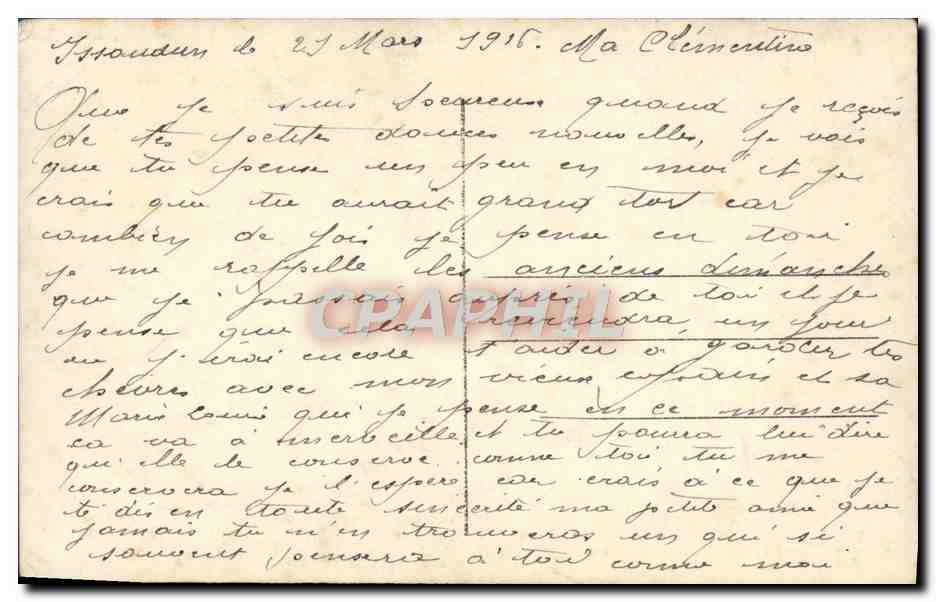 Issoudun le 21 Mars 1916. Ma Clémentine
Que je suis heureux quand je reçois
de tes petites douces nouvelles, je vois
que tu pense un peu en moi et je
crais que tu aurait grand tort car
combien de fois je pense en toi
je me rappelle les anciens dimanches
que je passais auprès de toi et je
pense que cela reviendra un jour
ou j'irai encore t'aider a garder tes
chevres avec mon vieux copain et sa
Marie Louise qui je pense en ce moment
ca va à merveille et tu pourra lui dire
qu'elle le conserve comme toi tu me
conservera je l'espère car crais à ce que je
te dis en toute sincérité ma ptite amie que
jamais tu n'en trouveras un qui si
souvent pensera à toi comme moi
CPAPHIL